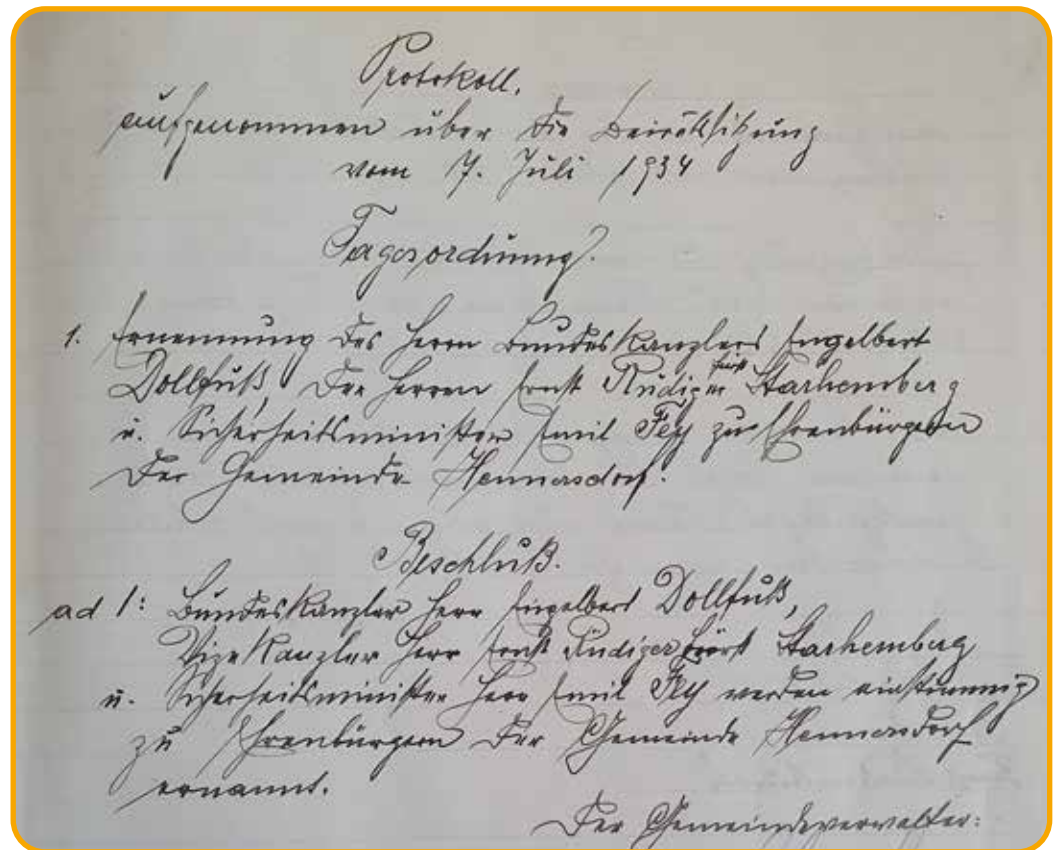 Protokoll.
aufgenommen über die Beiratssitzung
vom 7. Juli 1934
Tagesordnung.
1. Ernennung des Herrn Bundeskanzlers Engelbert
Dollfuß, der Herren Ernst Rüdiger Fürst Starhemberg
u. Sicherheitsminister Emil Fey zu Ehrenbürgern
der Gemeinde Hennersdorf.
Beschluß.
ad 1: Bundeskanzler Herr Engelbert Dollfuß,
Vizekanzler Herr Ernst Rüdiger Fürst Starhemberg
u. Sicherheitsminister Herr Emil Fey werden einstimmig
zu Ehrenbürgern der Gemeinde Hennersdorf
ernannt.
Der Gemeindeverwalter: